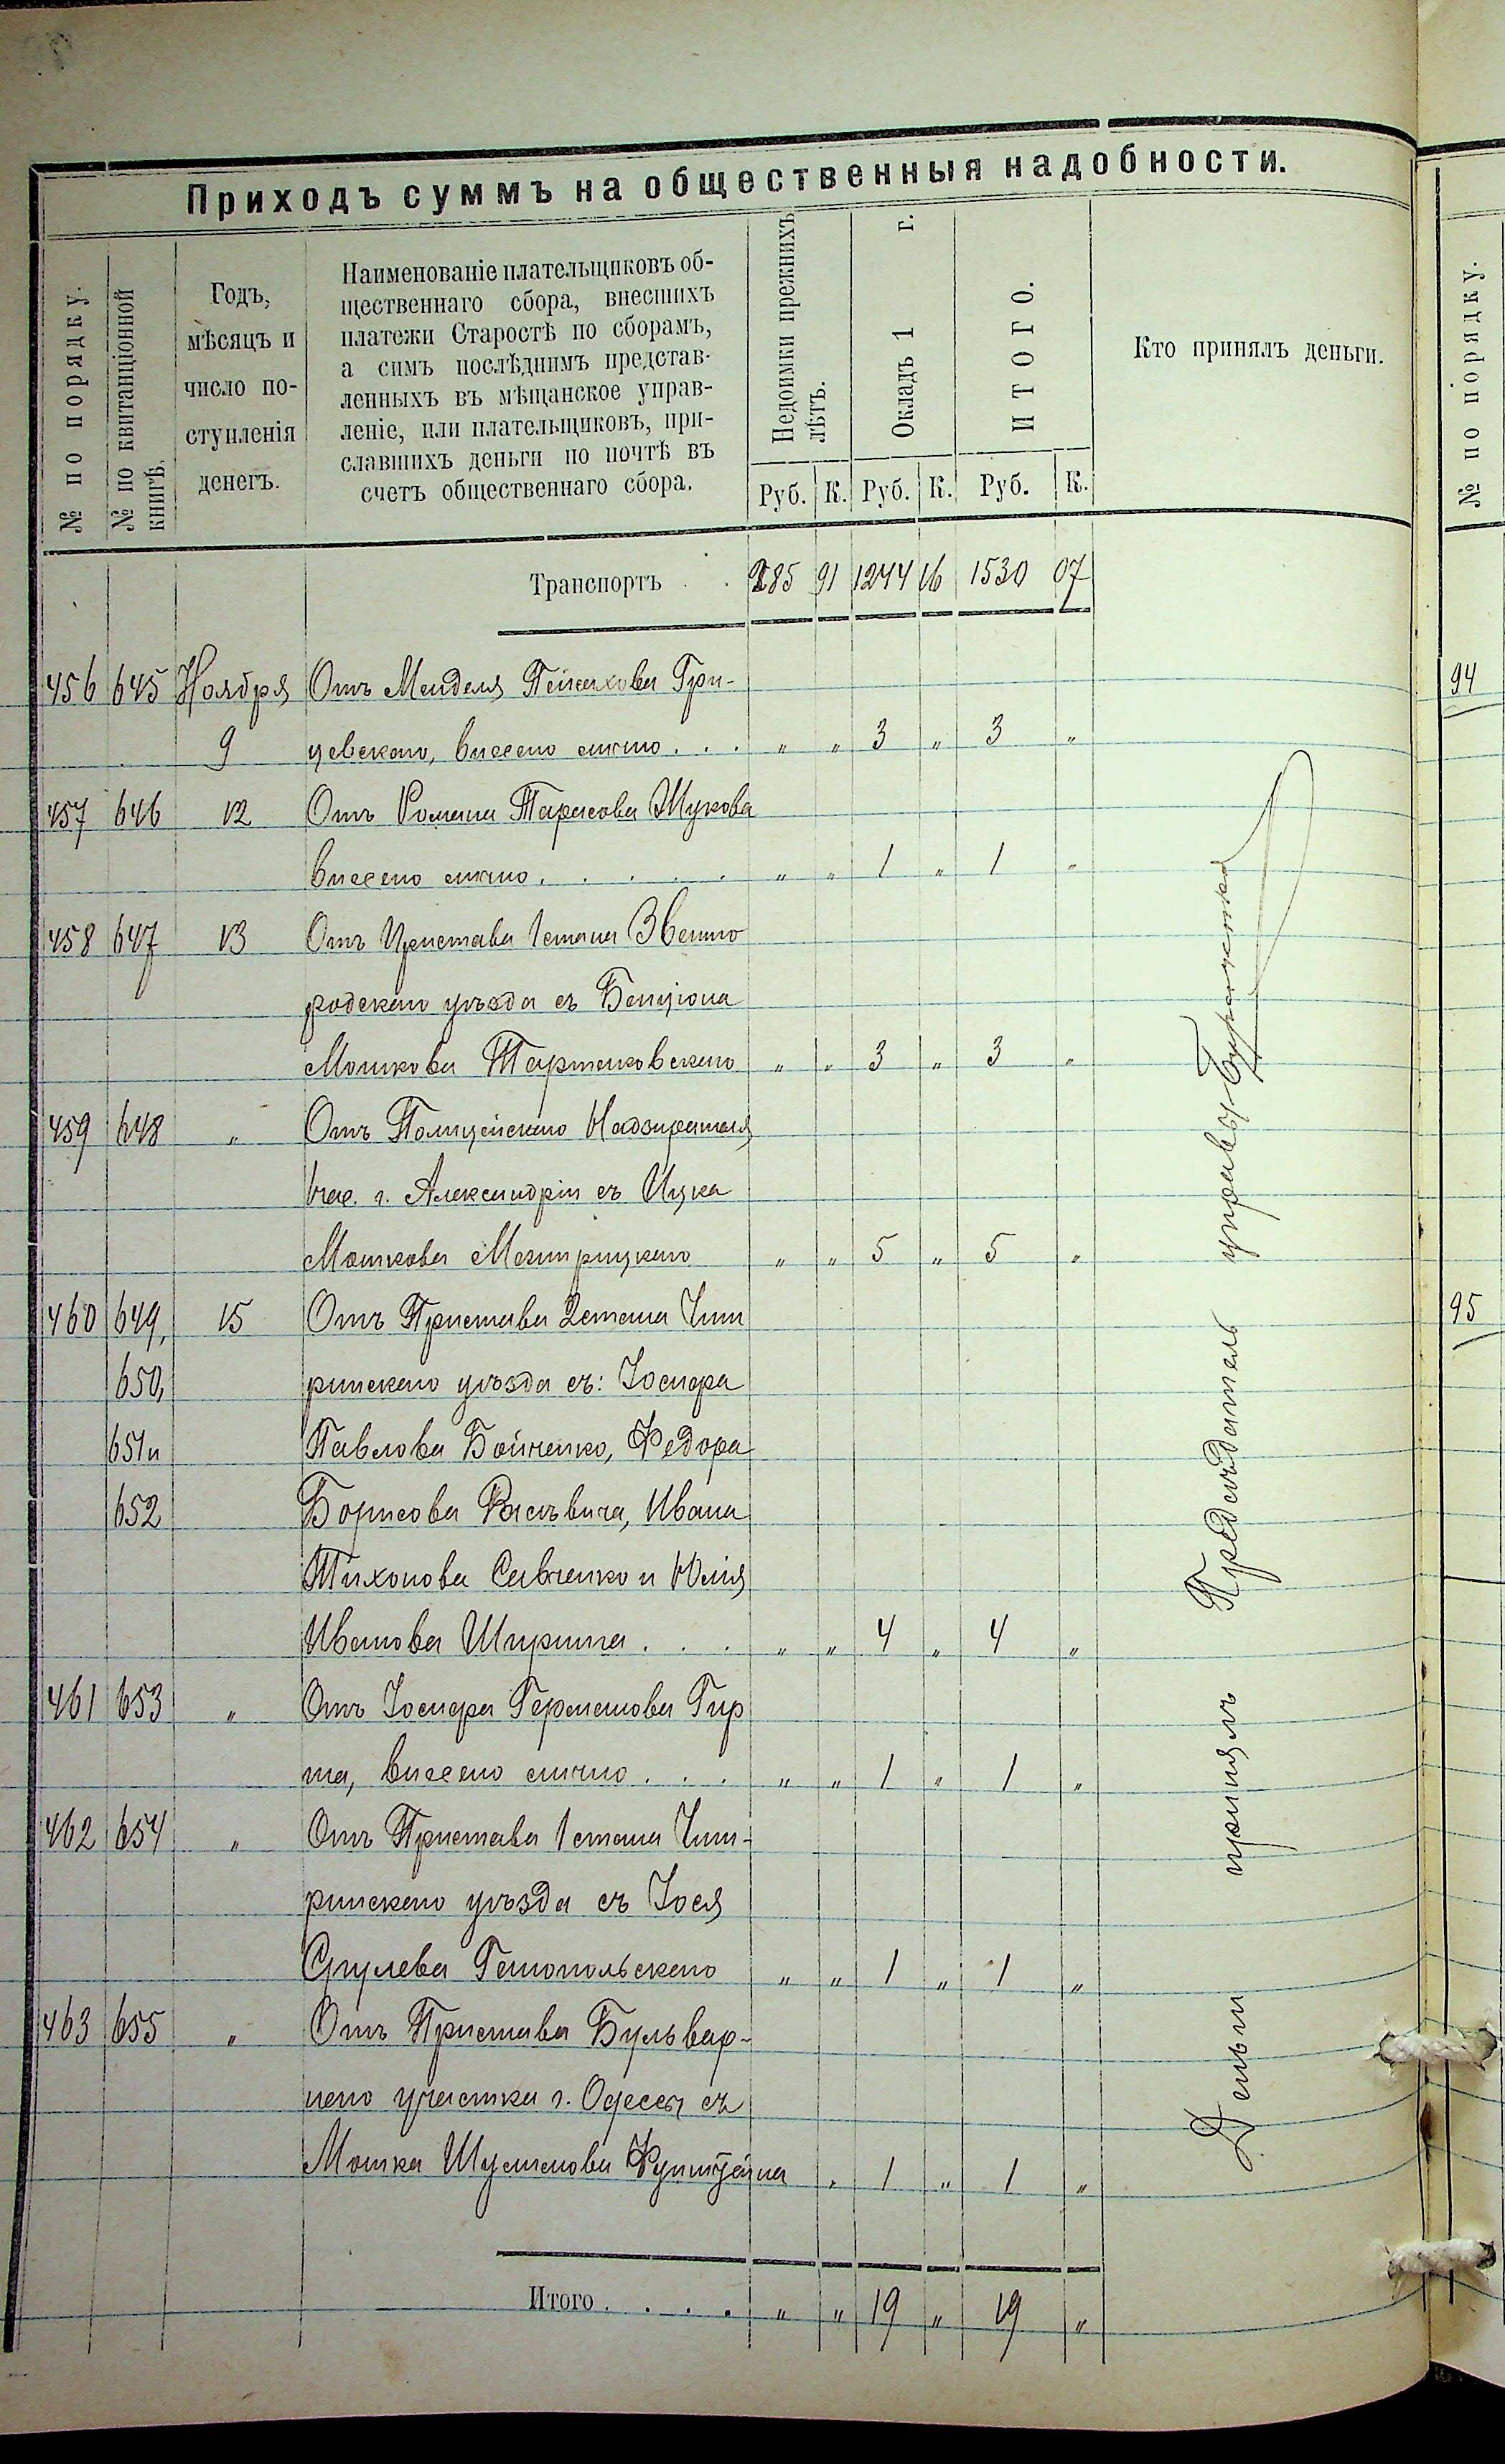 Приходъ суммъ на общественныя надобности.
№ по порядку.
№ по квитанціонной
книгѣ.
Годъ,
мѣсяцъ и
число по-
ступленія
денегъ.
Наименованіе плательщиковъ об-
щественнаго сбора, внесшихъ
платежи Старостѣ по сборамъ,
а симъ послѣднимъ представ-
ленныхъ въ мѣщанское управ-
леніе, или плательщиковъ, при-
славшихъ деньги по почтѣ въ
счетъ общественнаго сбора.
Недоимки прежнихъ
лѣтъ.
Окладъ 1 г.
ИТОГО.
Кто принялъ деньги.
Руб. К. Руб. К. Руб. К.
Транспортъ . . 285 91 1244 16 1530 07
456 645 Ноября Отъ Менделя Пейсахова Гри-
9 цевскаго, внесено лично . . . " " 3 " 3 "
457 646 12 Отъ Романа Тарасова Жукова
внесено лично . . . . . " " 1 " 1 "
458 647 13 Отъ Пристава 1 стана Звенио
родскаго уѣзда съ Бенціона
Мошкова Тартаковскаго " " 3 " 3 "
459 648 " Отъ Полицейскаго Надзирателя
г. Александріи съ Ицка
Мошкова Межирицкаго " " 5 " 5 "
460 649, 15 Отъ Пристава 2 стана Чиги
650, ринскаго уѣзда съ: Іосифа
651 и Павлова Бойченко, Федора
652 Борисова Ивана
Тихонова Савченко и Юлія
Иванова . . . " " 4 " 4 "
461 653 " Отъ Іосифа Германова Гир
ша, внесено лично . . . " " 1 " 1 "
462 654 " Отъ Пристава 1 стана Чиги-
ринскаго уѣзда съ Іося
Срулева " " 1 " 1 "
463 655 " Отъ Пристава Бульвар-
наго участка г. Одессы съ
Мошка Шулимова " 1 " 1 "
Итого . . . . " " 19 " 19 "
Деньги принялъ Предсѣдатель управы
№ по порядку.
94
95